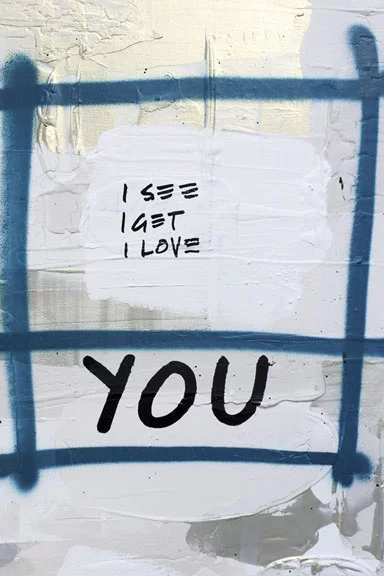 I SEE
I GET
I LOVE
YOU